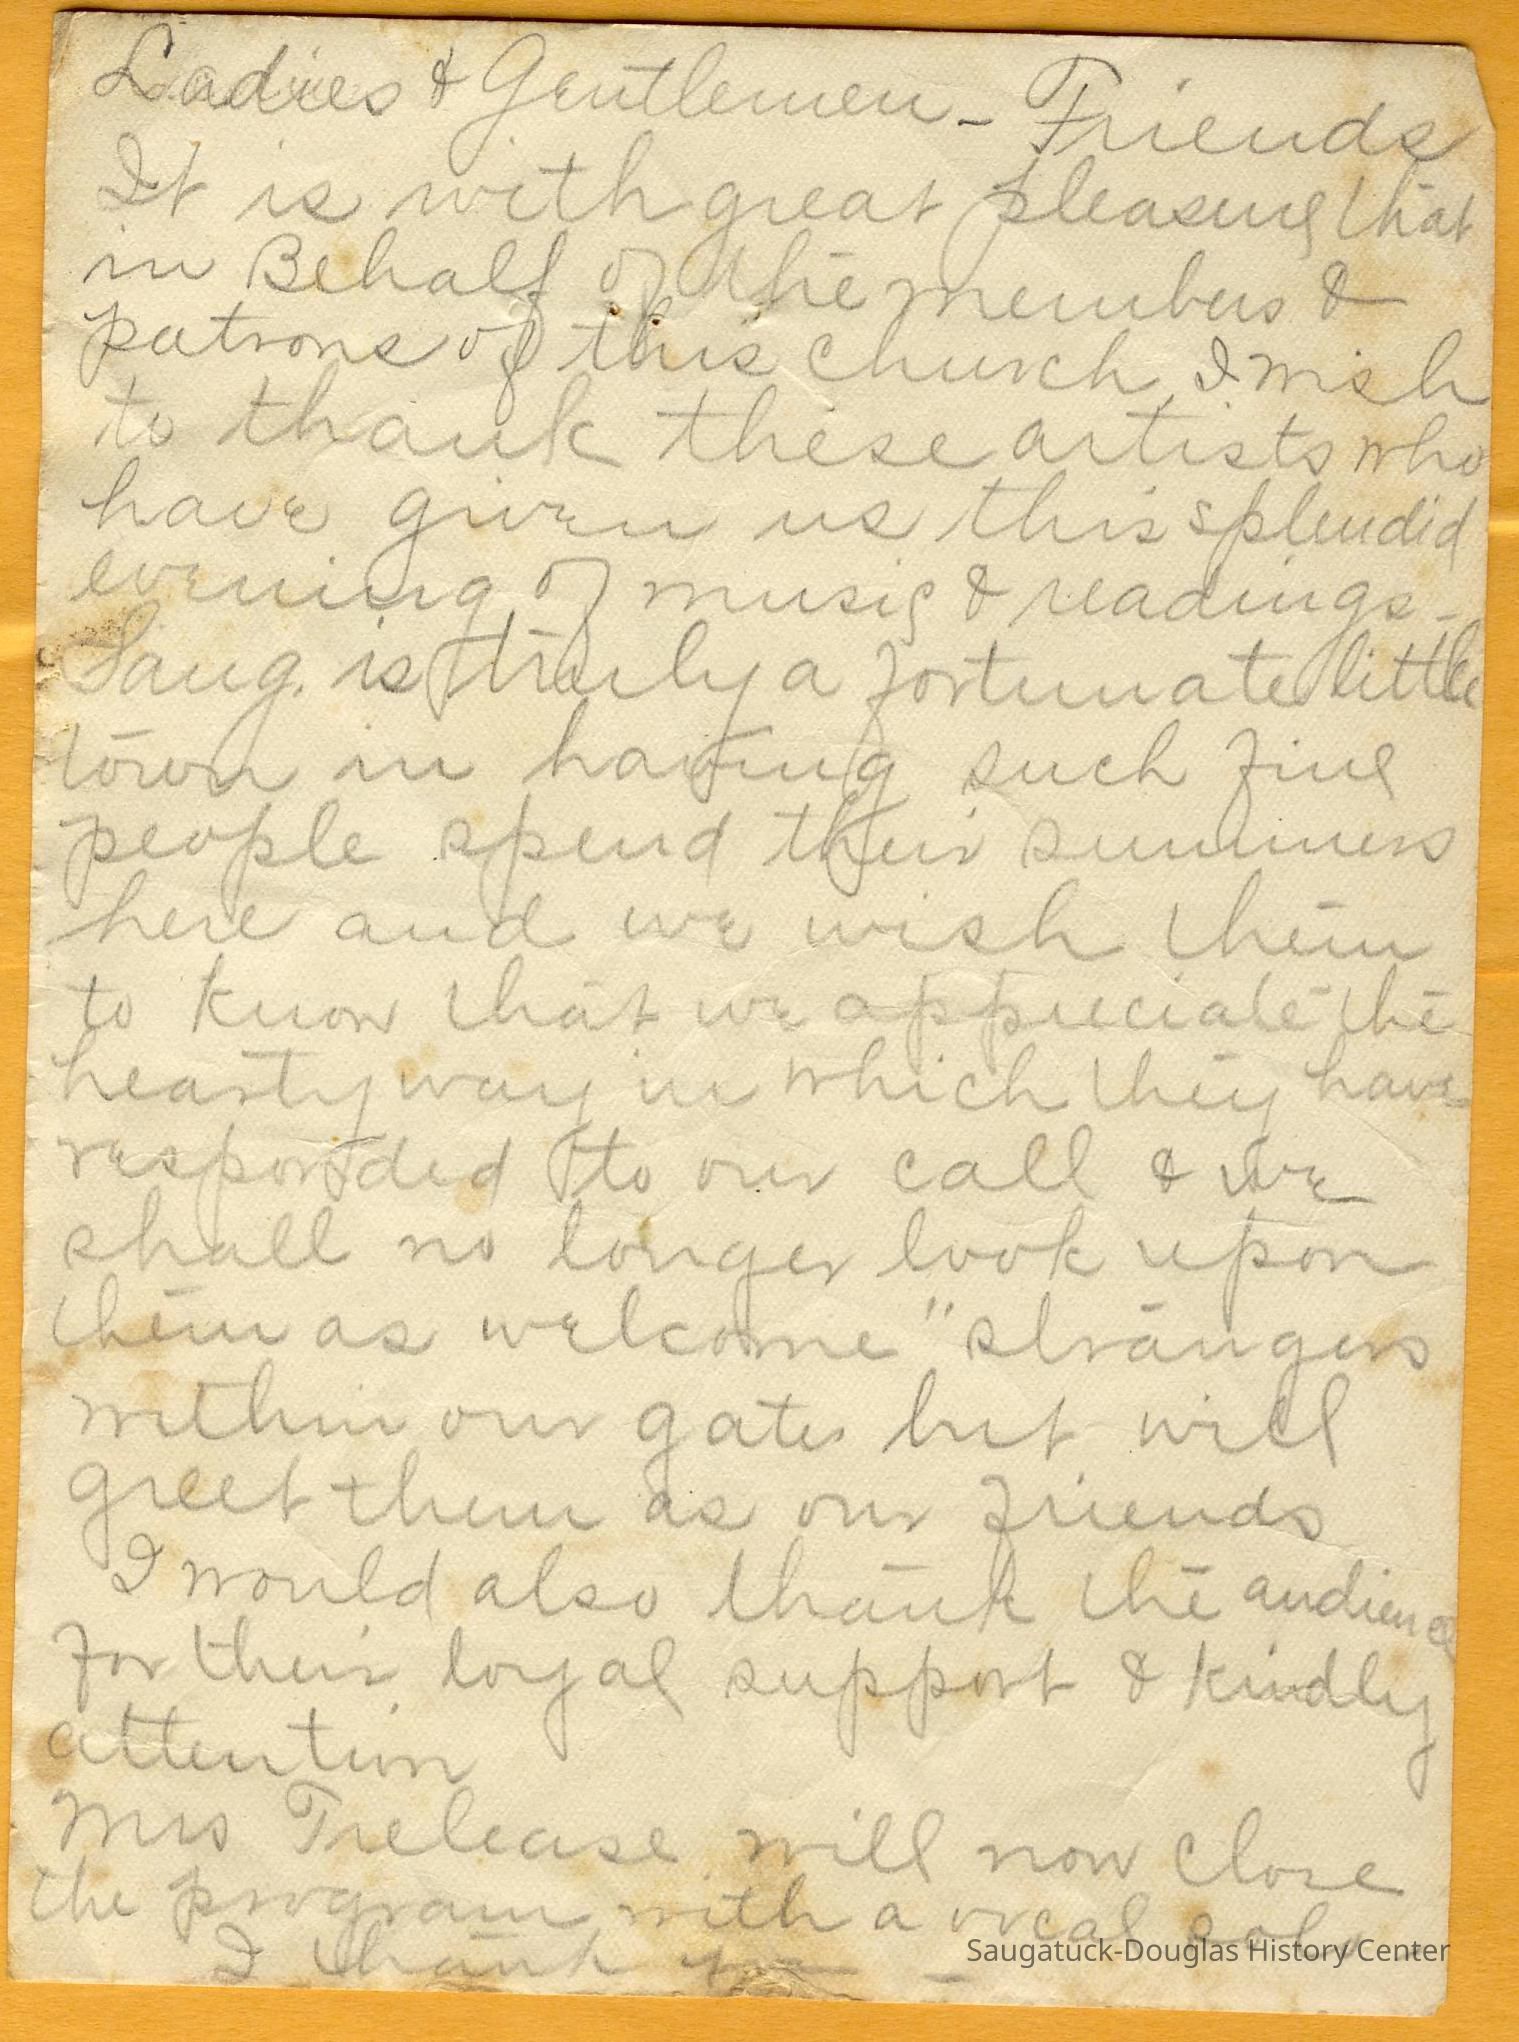 Ladies & Gentlemen - Friends
It is with great pleasure that
in Behalf of the members &
patrons of this church I wish
to thank these artists who
have given us this splendid
evening of music & readings -
Saug. is truly a fortunate little
town in having such fine
people spend their summers
here and we wish them
to know that we appreciate the
hearty way in which they have
responded to our call & we
shall no longer look upon
them as welcome "strangers
within our gates but will
greet them as our friends
I would also thank the audience
for their loyal support & kindly
attention
Mrs Trelease will now close
the program with a vocal solo
I thank you -
Saugatuck-Douglas History Center